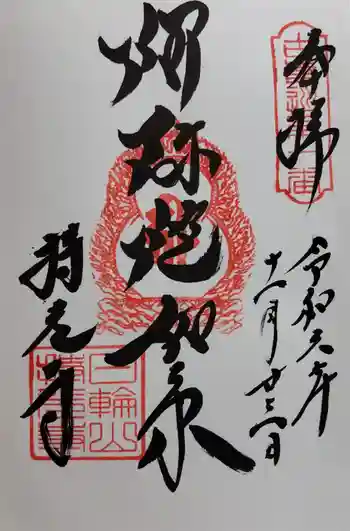 奉拝
令和六年
十一月廿三日
阿弥陀如来
持光寺
日輪山
持光寺